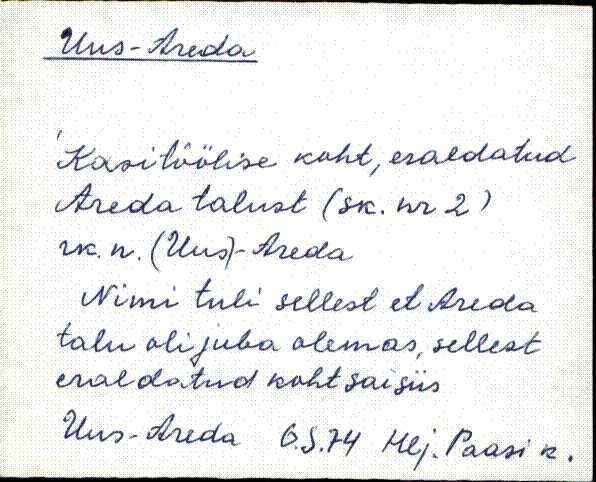 Uus-Areda
Käsitöölise koht, eraldatud
Areda talust (sk. nr 2)
rk. n. (Uus)-Areda
Nimi tuli sellest et Areda
talu oli juba olemas, sellest
eraldatud koht sai siis
Uus-Areda 6.5.74 Hlj. Paasi k.